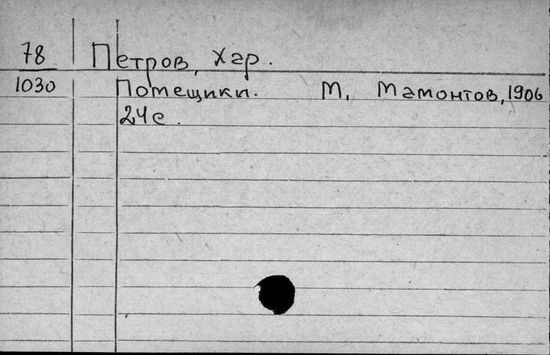 78 Петров, Хар.
1030 Помещики. М., Мамонтов, 1906
24с.